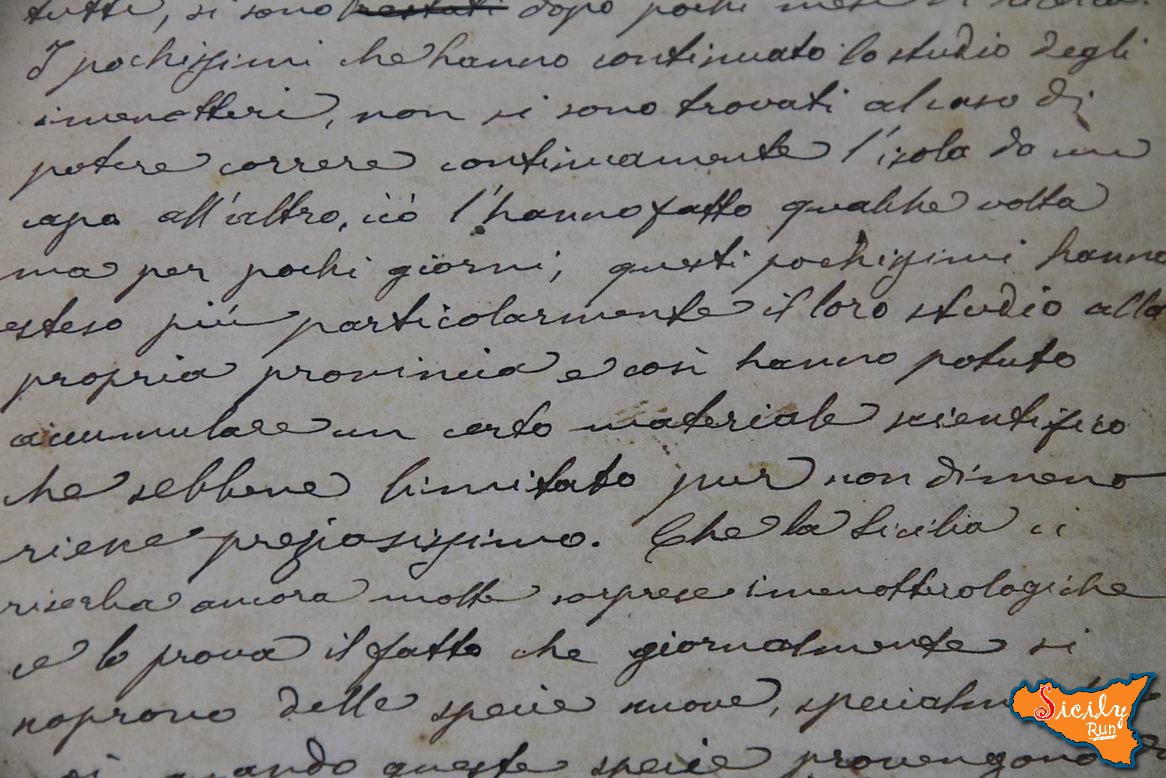 tutti, si sono restati dopo pochi mesi di ricerca.
I pochissimi che hanno continuato lo studio degli
imenotteri, non si sono trovati al caso di
potere correre continuamente l'isola da un
capo all'altro, ciò l'hanno fatto qualche volta
ma per pochi giorni; questi pochissimi hanno
esteso più particolarmente il loro studio alla
propria provincia e così hanno potuto
accumulare un certo materiale scientifico
che sebbene limitato pur non dimeno
riene preziosissimo. Che la Sicilia ci
riserba ancora molte sorprese imenotterologiche
ce lo prova il fatto che giornalmente si
scoprono delle specie nuove,
quando queste specie provengono
Sicily
Run